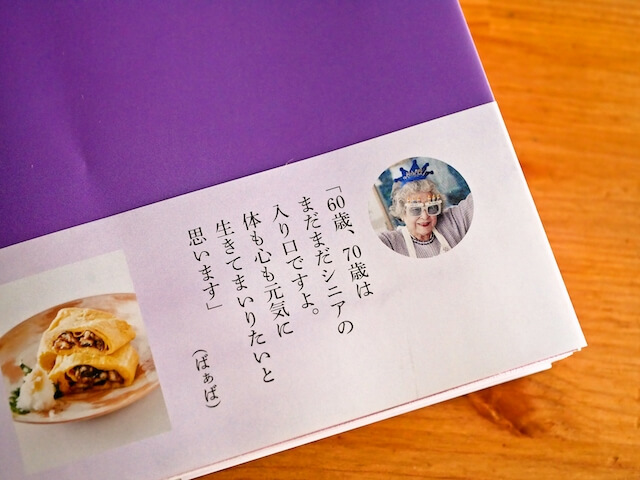 「60歳、70歳は
まだまだシニアの
入り口ですよ。
体も心も元気に
生きてまいりたいと
思います」
(ばぁば)